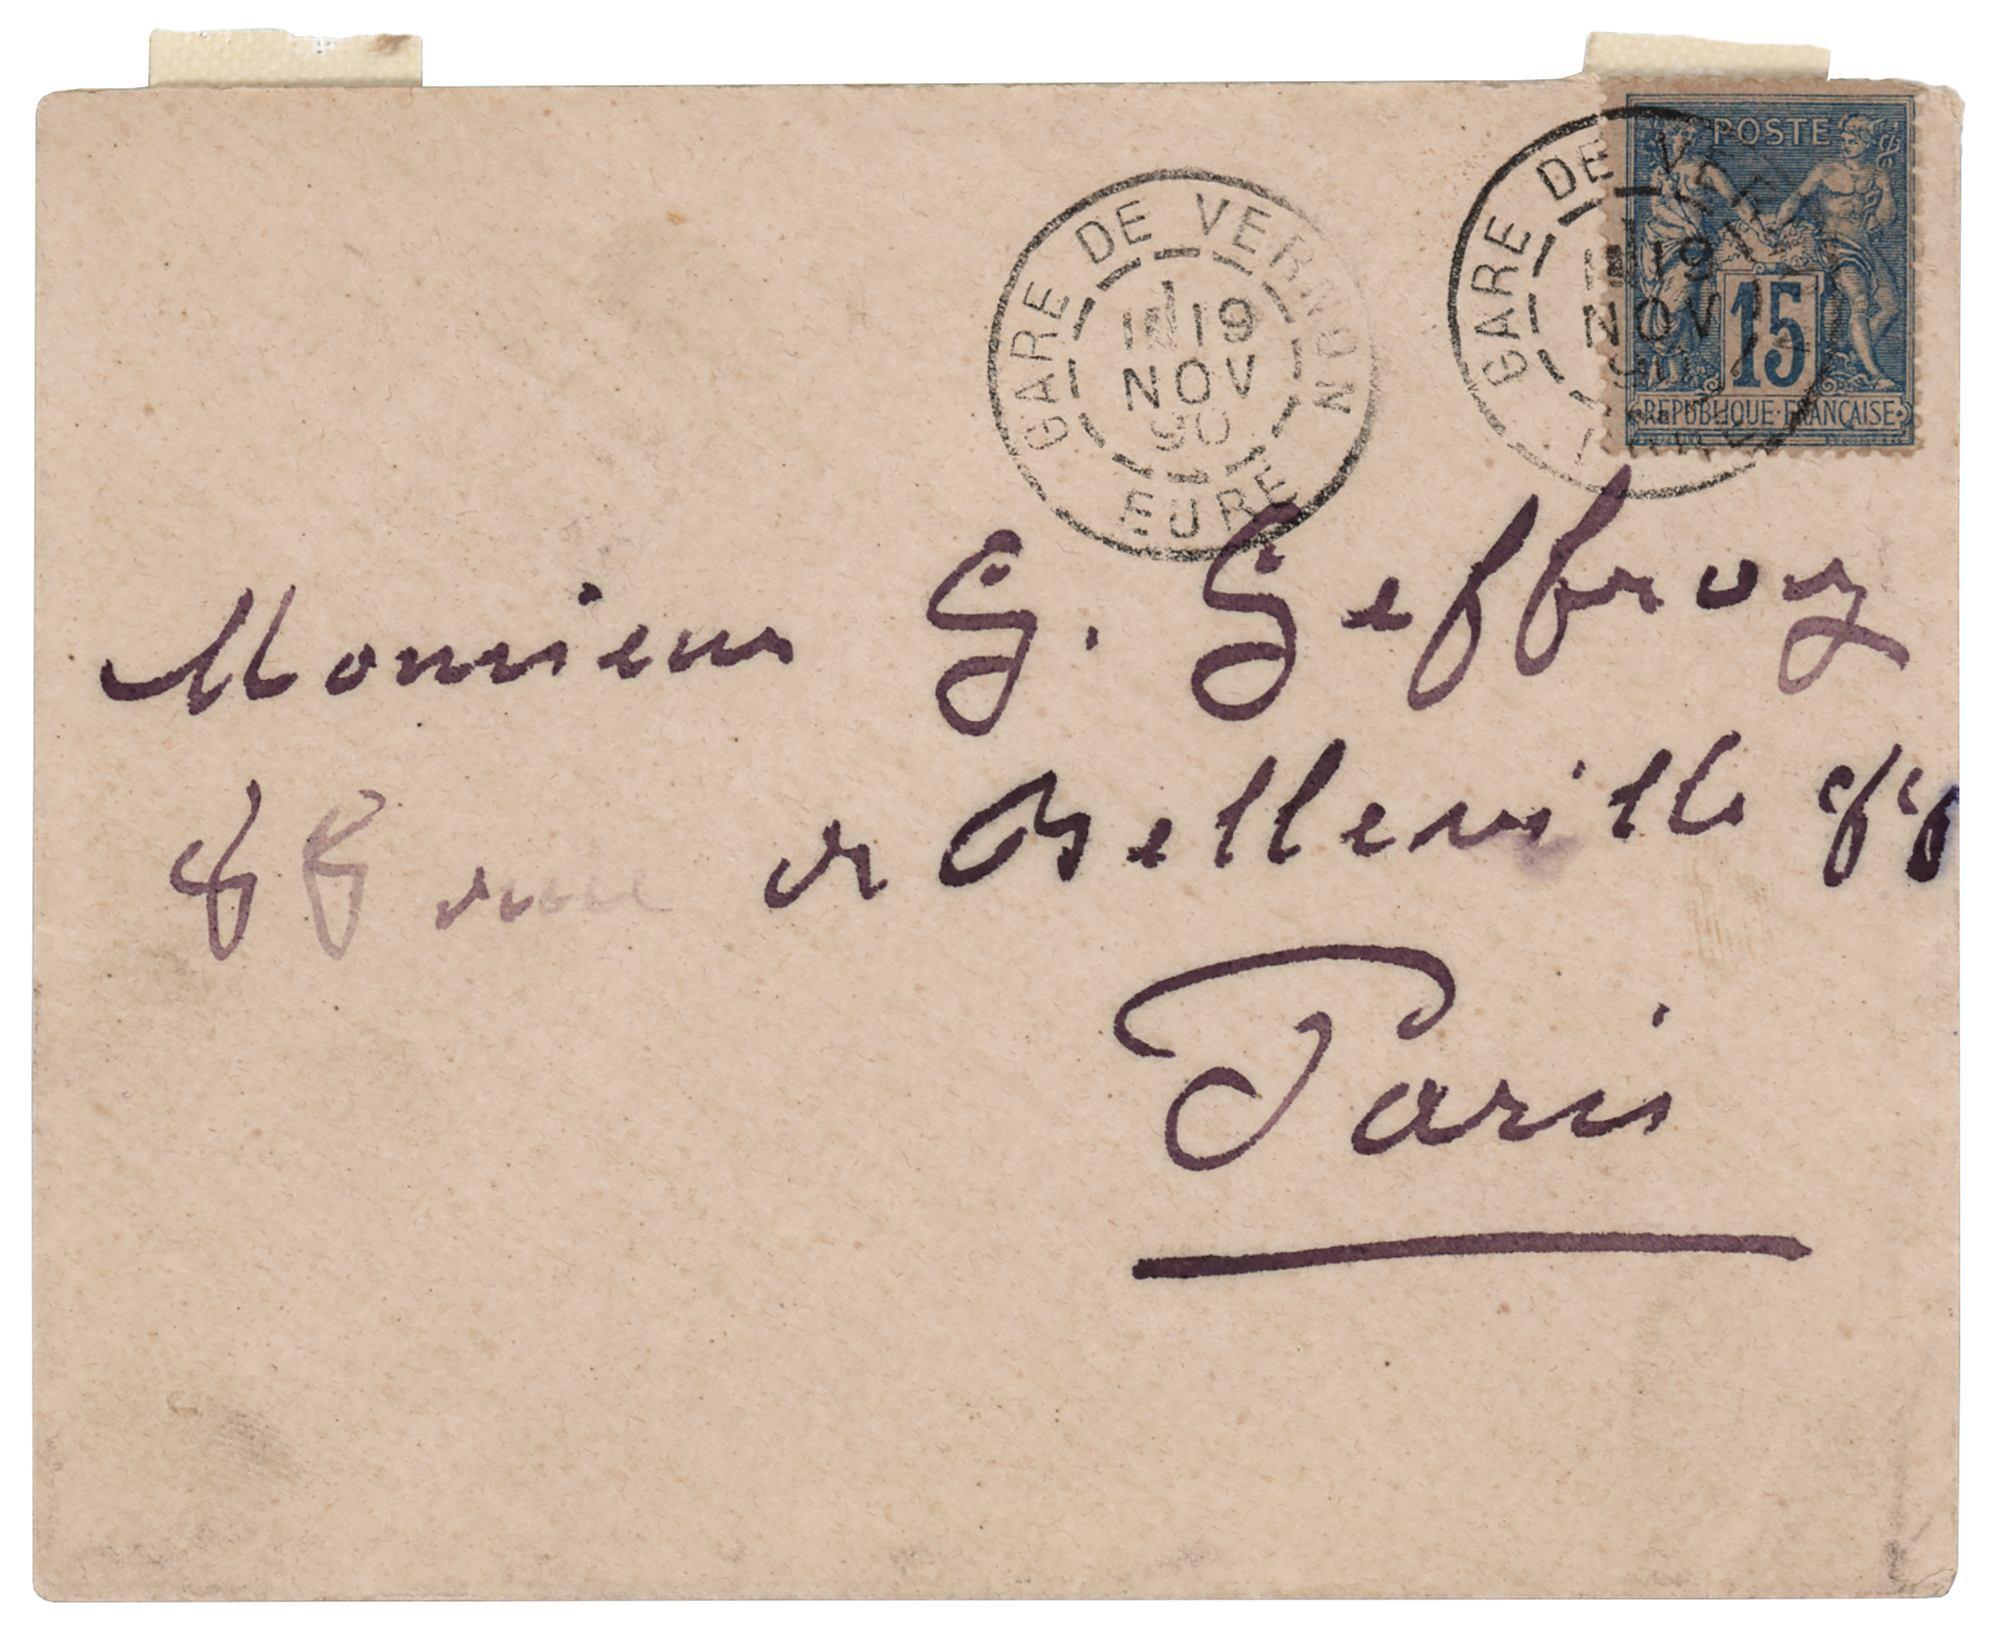 GARE DE VERNON
19
NOV
90
EURE
GARE DE VERNON
19
NOV
90
POSTE
15
REPUBLIQUE FRANÇAISE
Monsieur G. Geffroy
rue de Belleville
Paris